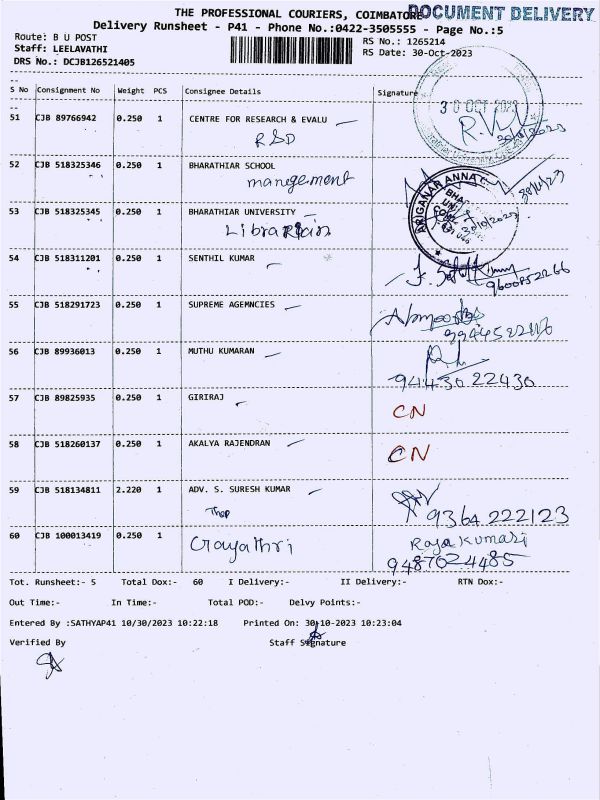 THE PROFESSIONAL COURIERS, COIMBATORE
DOCUMENT DELIVERY
Delivery Runsheet - P41 - Phone No.:0422-3505555 - Page No.:5
Route: B U POST
RS No.: 1265214
Staff: LEELAVATHI
RS Date: 30-Oct-2023
DRS No.: DCJB126521405
S No Consignment No Weight PCS Consignee Details Signature
30 OCT 2023
51 CJB 89766942 0.250 1 CENTRE FOR RESEARCH & EVALU
R&D
52 CJB 518325346 0.250 1 BHARATHIAR SCHOOL
management
ARIGNAR ANNA
53 CJB 518325345 0.250 1 BHARATHIAR UNIVERSITY
Librarian
30/10/2023
54 CJB 518311201 0.250 1 SENTHIL KUMAR
9600852266
55 CJB 518291723 0.250 1 SUPREME AGEMNCIES
56 CJB 89936013 0.250 1 MUTHU KUMARAN
94430 22430
57 CJB 89825935 0.250 1 GIRIRAJ
CN
58 CJB 518260137 0.250 1 AKALYA RAJENDRAN
CN
59 CJB 518134811 2.220 1 ADV. S. SURESH KUMAR
9364 222123
60 CJB 100013419 0.250 1 Gayathri
Rajakumari
9487024485
Tot. Runsheet:- 5 Total Dox:- 60 I Delivery:- II Delivery:- RTN Dox:-
Out Time:- In Time:- Total POD:- Delvy Points:-
Entered By :SATHYAP41 10/30/2023 10:22:18 Printed On: 30-10-2023 10:23:04
Verified By Staff Signature